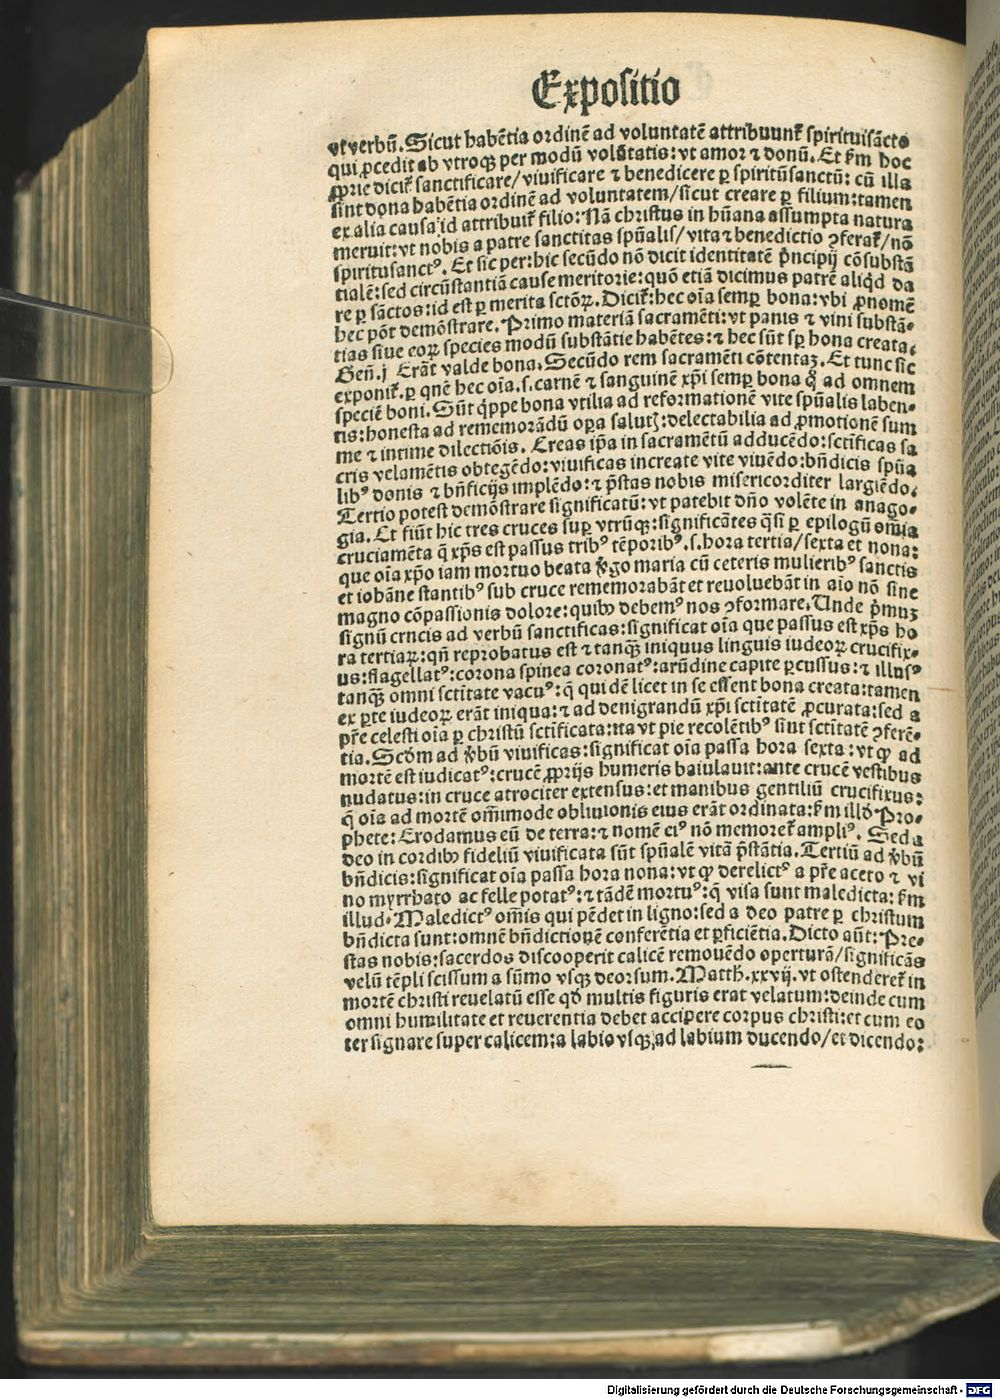 Expositio
vt verbū. Sicut habētia ordinē ad voluntatē attribuunt᷑ spirituisācto
qui ꝓcedit ab vtroqꝫ per modū volūtatis: vt amor ⁊ donū. Et ẜm hoc
ꝓprie dicit᷑ sanctificare/ viuificare ⁊ benedicere ꝑ spiritūsanctū: cū illa
sint dona habētia ordinē ad voluntatem/ sicut creare ꝑ filium: tamen
ex alia causa id attribuit᷑ filio: Nā christus in hūana assumpta natura
meruit: vt nobis a patre sanctitas spūalis/ vita ⁊ benedictio ꝯferat᷑/ nō
spiritusanctꝰ. Et sic per: hic secūdo nō dicit identitatē pͥncipij cōsubstā
tialē: sed circūstantiā cause meritorie: quō etiā dicimus patrē aliqͥd da
re ꝑ sāctos: id est ꝑ merita sctōꝝ. Dicit᷑: hec oīa semꝑ bona: vbi ꝓnomē
hec pōt demōstrare. Primo materiā sacramēti: vt panis ⁊ vini substā-
tias siue eoꝝ species modū substātie habētes: ⁊ hec sūt sꝑ bona creata.
Geñ. j Erāt valde bona. Secūdo rem sacramēti cōtentaꝫ. Et tunc sic
exponit᷑. ꝑ quē hec oīa .s. carnē ⁊ sanguinē xp̄i semꝑ bona qͣ ad omnem
speciē boni. Sūt qͥppe bona vtilia ad reformationē vite spūalis laben-
tis: honesta ad rememorādū oꝑa salutꝭ: delectabilia ad ꝓmotionē sum
me ⁊ intime dilectiōis. Creas ip̄a in sacramētū adducēdo: sctificas sa
cris velamētis obtegēdo: viuificas increate vite viuēdo: bn̄dicis spūa
libꝰ donis ⁊ bn̄ficijs implēdo: ⁊ p̄stas nobis misericorditer largiēdo.
Tertio potest demōstrare significatū: vt patebit dn̄o volēte in anago-
gia. Et fiūt hic tres cruces suꝑ vtrūqꝫ: significātes qͣsi ꝑ epilogū om̄ia
cruciamēta q̄ xp̄s est passus tribꝰ tēporibꝰ .s. hora tertia/ sexta et nona:
que oīa xp̄o iam mortuo beata v̓go maria cū ceteris mulieribꝰ sanctis
et iohāne stantibꝰ sub cruce rememorabāt et reuoluebāt in aīo nō sine
magno cōpassionis dolore: quibꝰ debemꝰ nos ꝯformare. Unde pͥmuꝫ
signū crncis ad verbū sanctificas: significat oīa que passus est xp̄s ho
ra tertiaꝝ: qn̄ reprobatus est ⁊ tanqꝫ iniquus linguis iudeoꝝ crucifix-
us: flagellatꝰ: corona spinea coronatꝰ: arūdine capite ꝑcussus: ⁊ illusꝰ
tanqꝫ omni sctitate vacuꝰ: q̄ qui dē licet in se essent bona creata: tamen
ex ꝑte iudeoꝝ erāt iniqua: ⁊ ad denigrandū xp̄i sctitatē ꝓcurata: sed a
pr̄e celesti oīa ꝑ christū sctificata: ita vt pie recolētibꝰ sint sctitatē ꝯferē-
tia. Scḋm ad v̓bū viuificas: significat oīa passa hora sexta: vt ꝙ ad
mortē est iudicatꝰ: crucē ꝓprijs humeris baiulauit: ante crucē vestibus
nudatus: in cruce atrociter extensus: et manibus gentiliū crucifixus:
q̄ oīa ad mortē om̄imode obliuionis eius erāt ordinata: ẜm illḋ Pro-
phete: Erodamus eū de terra: ⁊ nomē eiꝰ nō memoret᷑ ampliꝰ. Sed a
deo in cordibꝰ fideliū viuificata sūt spūalē vitā p̄stātia. Tertiū ad v̓bū
bn̄dicis: significat oīa passa hora nona: vt ꝙ derelictꝰ a pr̄e aceto ⁊ vi
no myrrhato ac felle potatꝰ: ⁊ tādē mortuꝰ: q̄ visa sunt maledicta: ẜm
illud. Maledictꝰ om̄is qui pēdet in ligno: sed a deo patre ꝑ christum
bn̄dicta sunt: omnē bn̄dictionē conferētia et ꝑficiētia. Dicto aūt: Pre-
stas nobis: sacerdos discooperit calicē remouēdo operturā/ significās
velū tēpli scissum a sūmo vsqꝫ deorsum. Matth. xxvij. vt ostenderet᷑ in
mortē christi reuelatū esse qḋ multis figuris erat velatum: deinde cum
omni humilitate et reuerentia debet accipere corpus christi: et cum eo
ter signare super calicem: a labio vsqꝫ ad labium ducendo/ et dicendo:
Digitalisierung gefördert durch die Deutsche Forschungsgemeinschaft - DFG